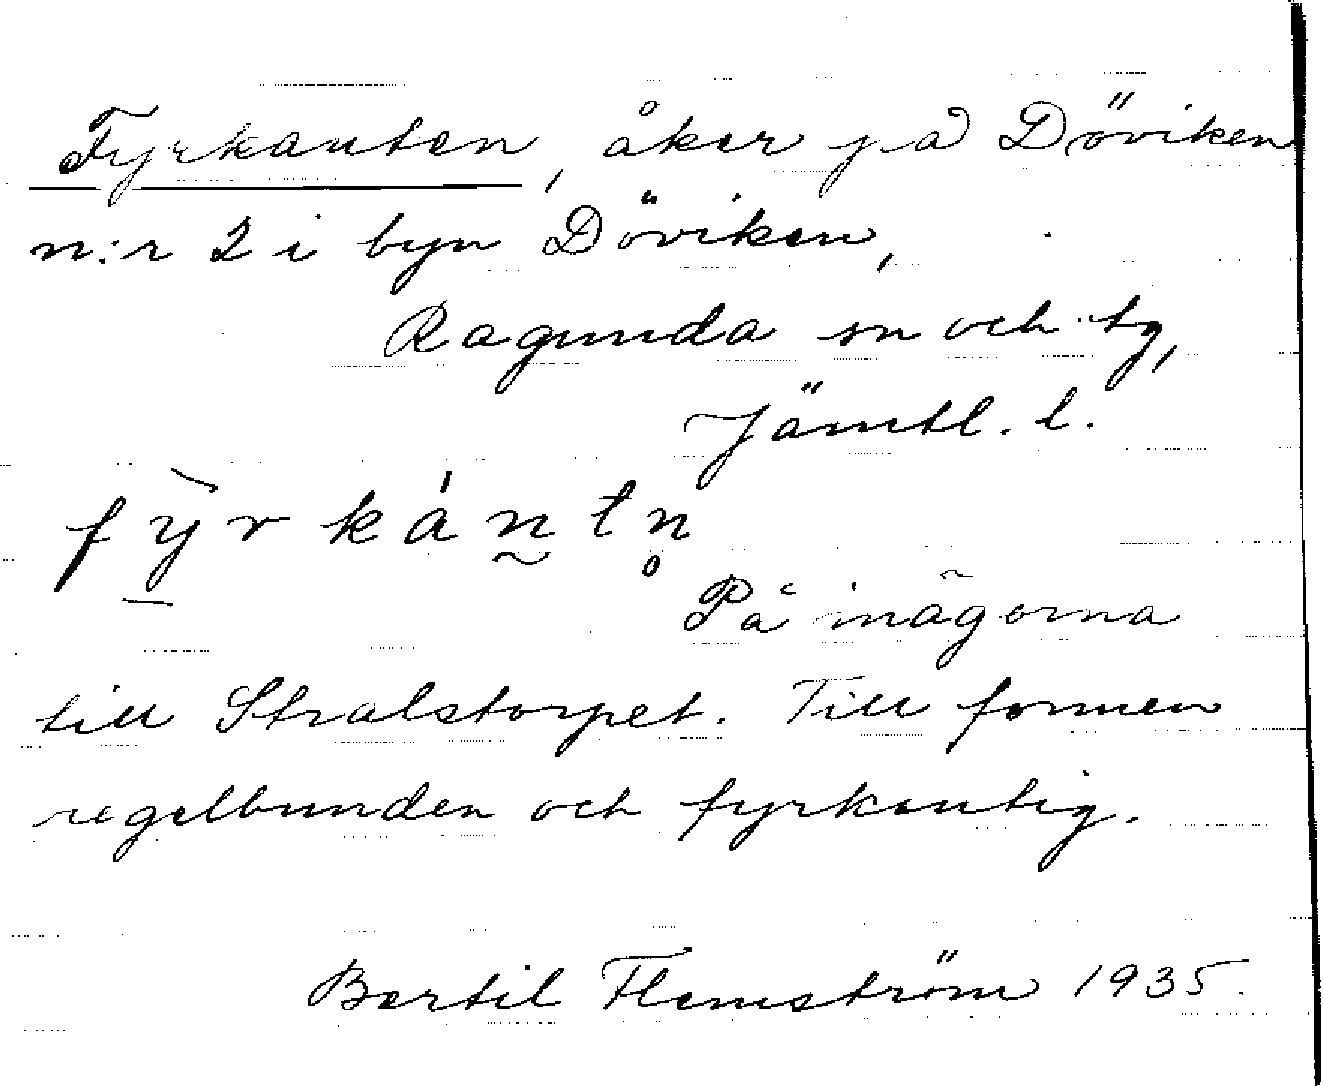 Fyrkanten, åker på Döviken
n:r 2 i byn Döviken,
Ragunda sn och tg,
Jämtl. l.
fỳ̠rkán̰tn̥
På inägorna
till Stralstorpet. Till formen
regelbunden och fyrkantig.
Bertil Flemström 1935.